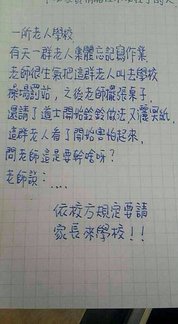 一所老人學校
有天一群老人集體忘記寫作業
老師很生氣把這群老人叫去學校
操場罰站,之後老師擺張桌子
還請了道士開始鈴鈴做法又灑冥紙.
這群老人看了開始害怕起來,
問老師這是要幹啥呀?
老師說:....
依校方規定要請
家長來學校!!